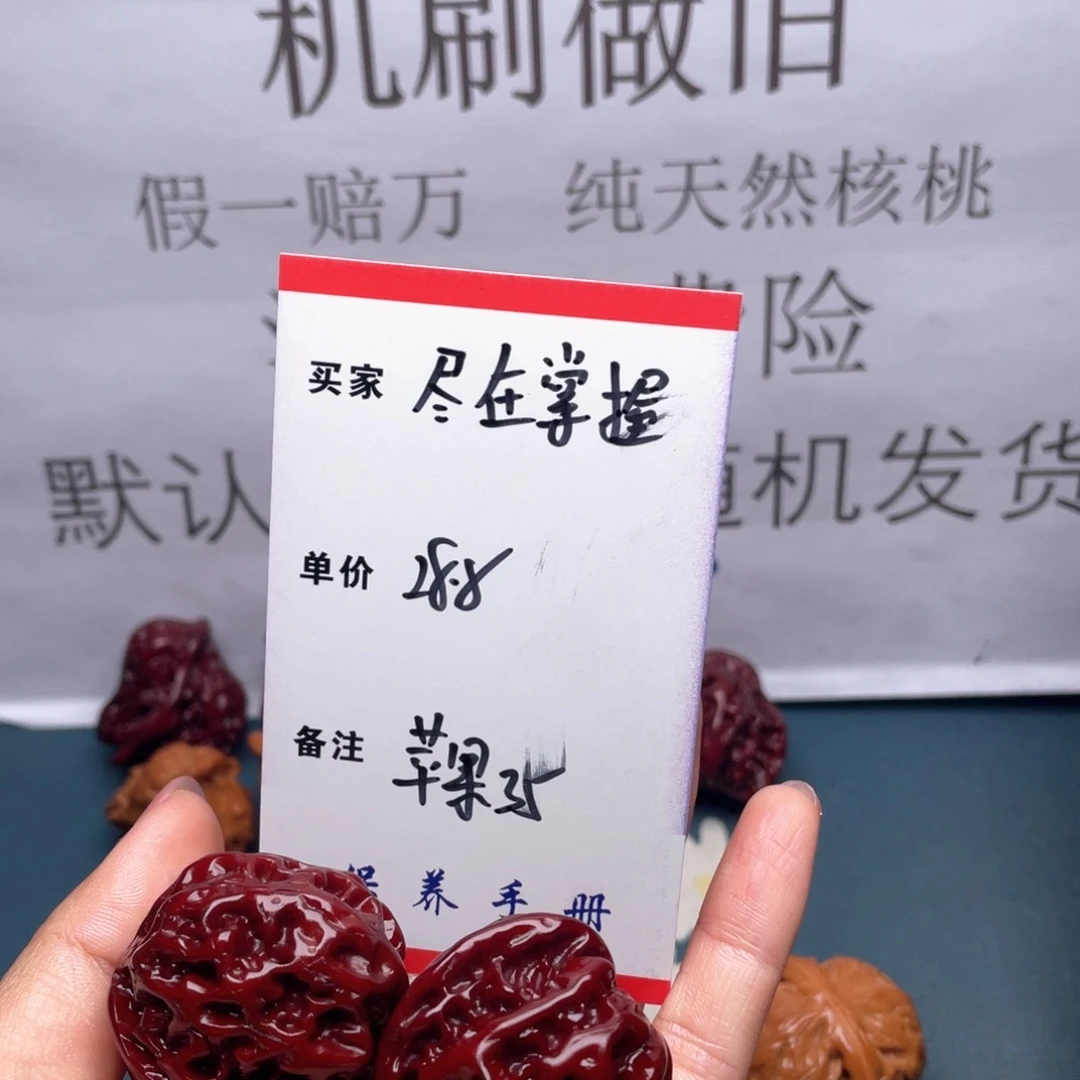 机刷做旧
假一赔万 纯天然核桃
险
默认 随机发货
买家 尽在掌握
单价 28.8
备注 苹果35
保养手册